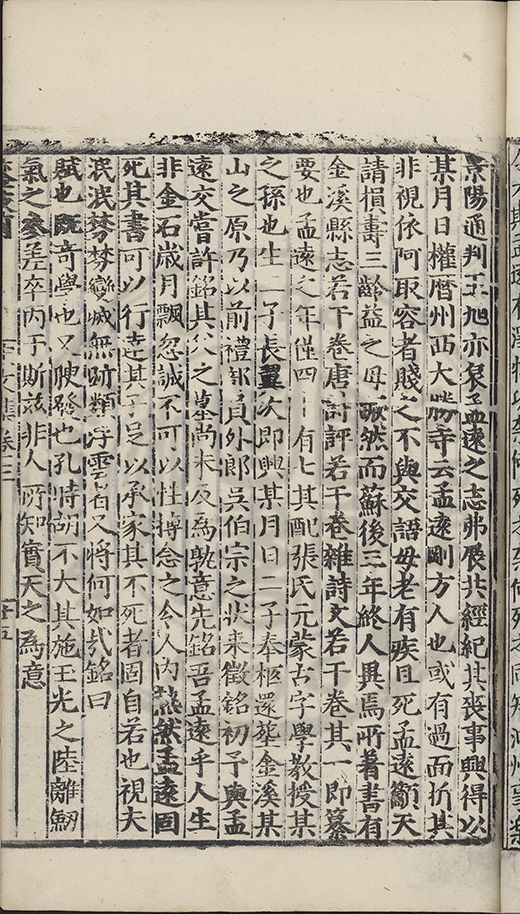 景陽通判王旭亦哀孟遠之志弗展共經紀其喪事興得以
某月日權厝州西大勝寺云孟遠剛方人也或有過面折其
非視依阿取容者賤之不與交語毋老有疾且死孟遠籲天
請損壽三齡益之毋歘然而蘇後三年終人異焉所著書有
金溪縣志若干卷唐詩評若干卷雜詩文若干卷其一即纂
要也孟遠之年僅四十有七其配張氏元蒙古字學教授某
之孫也生二子長翼次即興某月日二子奉柩還塟金溪某
山之原乃以前禮部員外郎吳伯宗之狀来徵銘初予與孟
遠交嘗許銘其父之墓尚未及為孰意先銘吾孟遠乎人生
非金石歲月飄忽誠不可以性摶念之令人內熱然孟遠固
死其書可以行逺其子足以承家其不死者固自若也視夫
泯泯棼棼變滅無跡類浮雲者又將何如㢤銘曰
賦也既奇學也又腴發也孔時胡不大其施玉光之陸離劒
氣之參差卒內于斯兹非人所知實天之為意
文集卷三
廿五